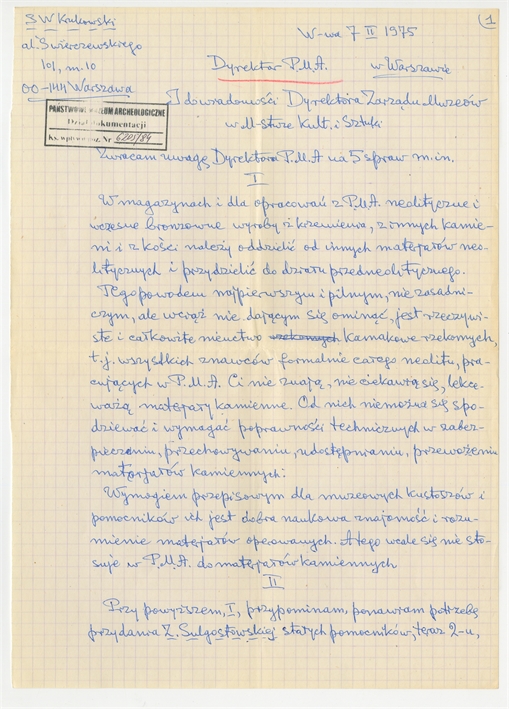 S W Krukowski
W-wa 7 II 1975
1
al. Świerczewskiego
101, m. 10
00-144 Warszawa
Dyrektor P.M.A. w Warszawie
PAŃSTWOWE MUZEUM ARCHEOLOGICZNE
Dział dokumentacji
Ks. wpływu poz. Nr
I do wiadomości Dyrektora Zarządu Muzeów
w M-stwie Kult. i Sztuki
Zwracam uwagę Dyrektora P.M.A na 5 spraw m.in.
I
W magazynach i dla opracowań z P.M.A neolityczne i
wczesno bronzowne wyroby z krzemienia, z innych kamie-
ni i z kości należy oddzielić od innych materjałów neo-
litycznych i przydzielić do działu przedneolitycznego.
Tego powodem najpierwszym i pilnym, nie zasadni-
czym, ale wciąż nie dającym się ominąć, jest rzeczywi-
ste i całkowite nieuctwo kamakowe rzekomych,
t.j. wszystkich znawców formalnie całego neolitu, pra-
cujących w P.M.A. Ci nie znają, nie ciekawią się, lekce-
ważą materjały kamienne. Od nich niemożna się spo-
dziewać i wymagać poprawności technicznych w zabez-
pieczaniu, przechowywaniu, udostępnianiu, przewożeniu
materjałów kamiennych.
Wymogiem przepisowym dla muzeowych kustoszów i
pomocników ich jest dobra naukowa znajomość i rozu-
mienie materjałów opeowanych. A tego wcale się nie sto-
suje w P.M.A. do materjałów kamiennych
II
Przy powyższem, I, przypominam, ponawiam potrzebę
przydania Z. Sulgostowskiej stałych pomocników, teraz 2-u,